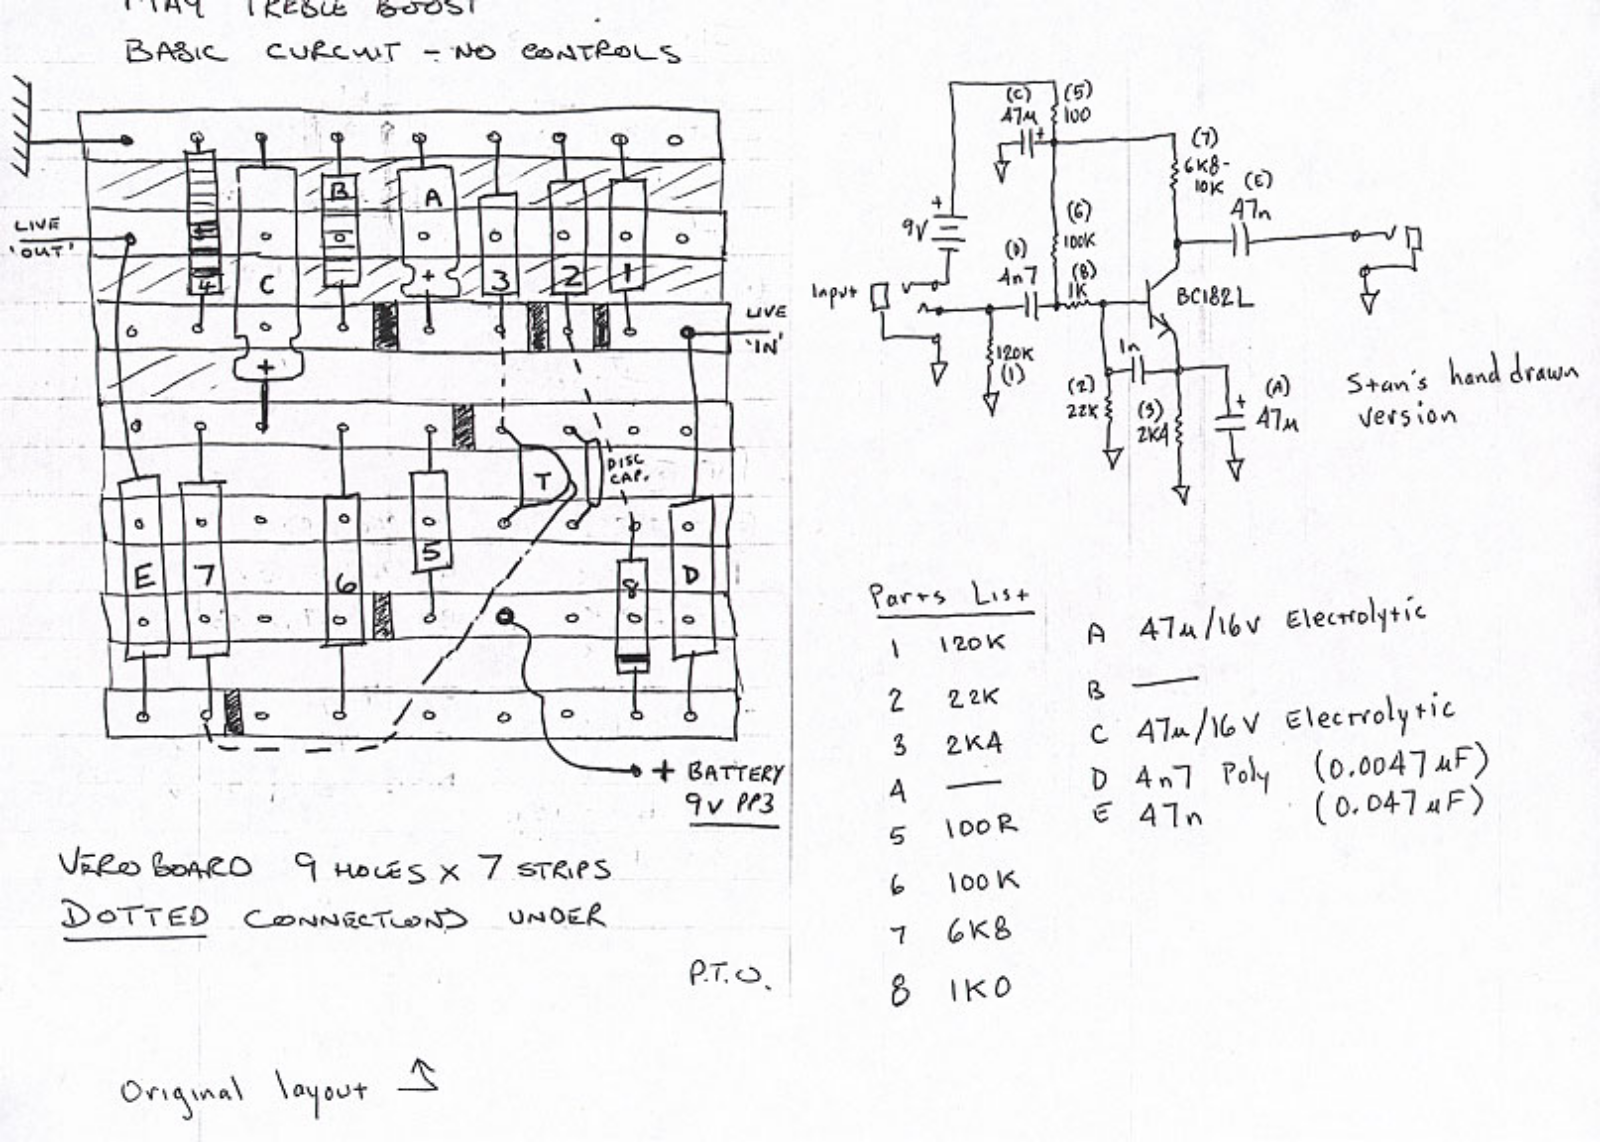 MAY TREBLE BOOST
BASIC CURCUIT - NO CONTROLS
LIVE
'OUT'
4
C
B
A
+
3
2
1
+
LIVE
'IN'
T
DISC
CAP.
E
7
6
5
8
D
+ BATTERY
9V PP3
VEROBOARD 9 HOLES X 7 STRIPS
DOTTED CONNECTIONS UNDER
P.T.O.
Original layout
(C)
47µ
+
(5)
100
(7)
6K8-
10K
(E)
47n
+
9V
(6)
100K
(D)
4n7
(8)
1K
Input
BC182L
120K
(1)
1n
(2)
22K
(3)
2K4
+
(A)
47µ
Stan's hand drawn
version
Parts List
1 120K
2 22K
3 2K4
4 —
5 100R
6 100K
7 6K8
8 1K0
A 47µ/16V Electrolytic
B —
C 47µ/16V Electrolytic
D 4n7 Poly (0.0047µF)
E 47n (0.047µF)